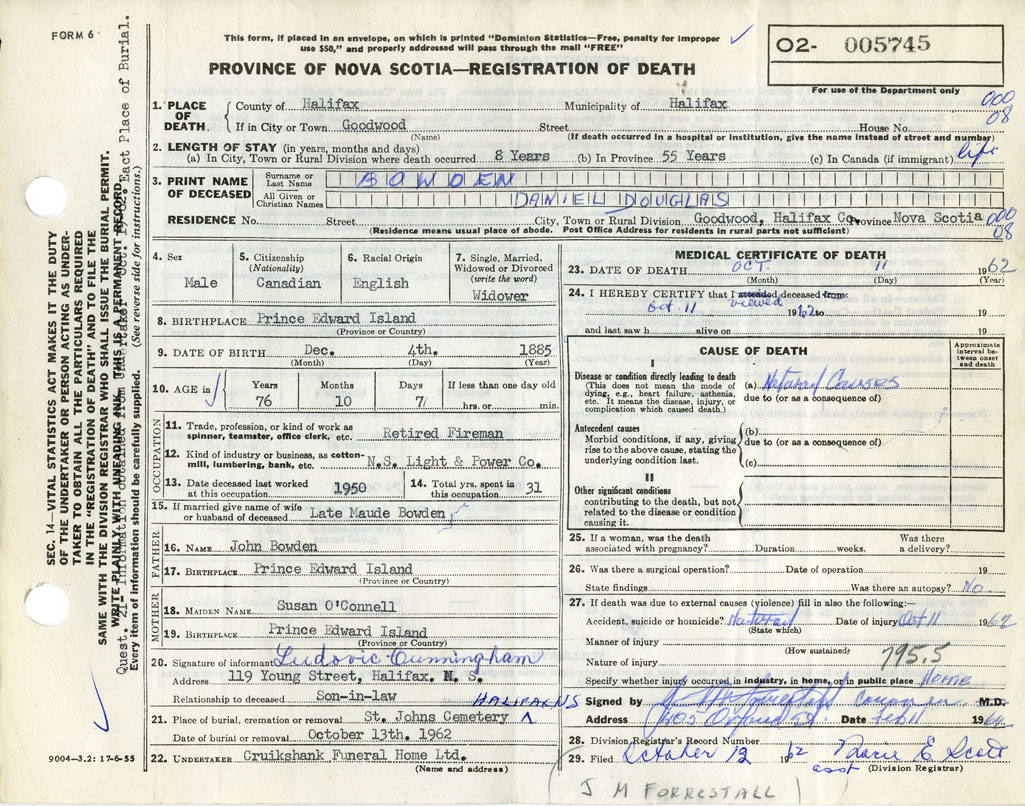 FORM 6
This form, if placed in an envelope, on which is printed "Dominion Statistics—Free, penalty for improper
use $50," and properly addressed will pass through the mail "FREE"
O2- 005745
PROVINCE OF NOVA SCOTIA—REGISTRATION OF DEATH
For use of the Department only
1. PLACE OF DEATH. County of Halifax Municipality of Halifax 000
If in City or Town Goodwood Street House No. 08
(Name) (If death occurred in a hospital or institution, give the name instead of street and number)
2. LENGTH OF STAY (in years, months and days)
(a) In City, Town or Rural Division where death occurred 8 Years (b) In Province 55 Years (c) In Canada (if immigrant) life
3. PRINT NAME OF DECEASED
Surname or Last Name BOWDEN
All Given or Christian Names DANIEL DOUGLAS
RESIDENCE No. Street City, Town or Rural Division Goodwood, Halifax Co. Province Nova Scotia 000
08
(Residence means usual place of abode. Post Office Address for residents in rural parts not sufficient)
4. Sex Male
5. Citizenship (Nationality) Canadian
6. Racial Origin English
7. Single, Married, Widowed or Divorced (write the word) Widower
8. BIRTHPLACE Prince Edward Island
(Province or Country)
9. DATE OF BIRTH Dec. 4th. 1885
(Month) (Day) (Year)
10. AGE in Years 76 Months 10 Days 7 If less than one day old hrs. or min.
OCCUPATION
11. Trade, profession, or kind of work as spinner, teamster, office clerk, etc. Retired Fireman
12. Kind of industry or business, as cotton-mill, lumbering, bank, etc. N.S. Light & Power Co.
13. Date deceased last worked at this occupation 1950
14. Total yrs. spent in this occupation 31
15. If married give name of wife or husband of deceased Late Maude Bowden
FATHER
16. NAME John Bowden
17. BIRTHPLACE Prince Edward Island
(Province or Country)
MOTHER
18. MAIDEN NAME. Susan O'Connell
19. BIRTHPLACE Prince Edward Island
(Province or Country)
20. Signature of informant Ludovic Cunningham
Address 119 Young Street, Halifax. N. S.
Relationship to deceased Son-in-law
HALIFAX NS
21. Place of burial, cremation or removal St. Johns Cemetery
Date of burial or removal October 13th. 1962
22. UNDERTAKER Cruikshank Funeral Home Ltd.
(Name and address)
MEDICAL CERTIFICATE OF DEATH
23. DATE OF DEATH OCT. 11 1962
(Month) (Day) (Year)
24. I HEREBY CERTIFY that I attended deceased from:
viewed
Oct. 11 1962 to 19
and last saw h alive on 19
CAUSE OF DEATH
Approximate interval between onset and death
I
Disease or condition directly leading to death
(This does not mean the mode of dying, e.g., heart failure, asthenia, etc. It means the disease, injury, or complication which caused death.)
(a) Natural Causes
due to (or as a consequence of)
Antecedent causes
Morbid conditions, if any, giving rise to the above cause, stating the underlying condition last.
(b)
due to (or as a consequence of)
(c)
II
Other significant conditions
contributing to the death, but not related to the disease or condition causing it.
25. If a woman, was the death associated with pregnancy? Duration weeks. Was there a delivery?
26. Was there a surgical operation? Date of operation 19
State findings Was there an autopsy? No
27. If death was due to external causes (violence) fill in also the following:—
Accident, suicide or homicide? Natural Date of injury Oct 11 1962
(State which)
Manner of injury
(How sustained)
Nature of injury 795.5
Specify whether injury occurred in industry, in home, or in public place Home
Signed by M.D.
Address Oxford St. Date Feb 11 1964
28. Division Registrar's Record Number
29. Filed October 13 1962 Marie E. Scott
asst (Division Registrar)
( J M FORRESTALL )
9004—3.2: 17-6-55
SEC. 14—VITAL STATISTICS ACT MAKES IT THE DUTY
OF THE UNDERTAKER OR PERSON ACTING AS UNDER-
TAKER TO OBTAIN ALL THE PARTICULARS REQUIRED
IN THE "REGISTRATION OF DEATH" AND TO FILE THE
SAME WITH THE DIVISION REGISTRAR WHO SHALL ISSUE THE BURIAL PERMIT.
WRITE PLAINLY WITH UNFADING INK—THIS IS A PERMANENT RECORD
Quest. 21- Information obtained from Undertaker Oct. Eact Place of Burial.
Every item of information should be carefully supplied. (See reverse side for instructions.)